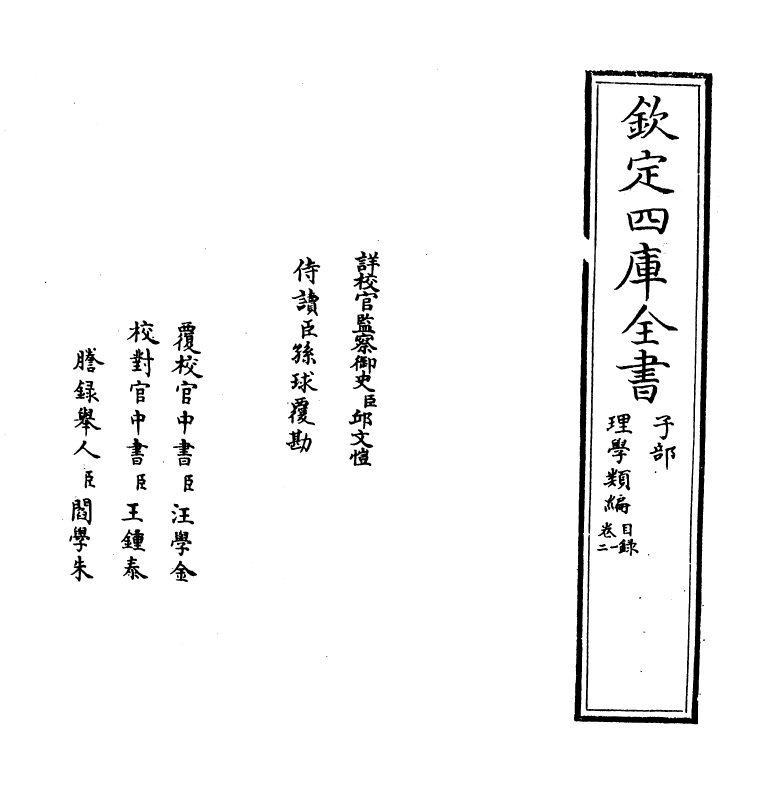 欽定四庫全書
子部
理學類編 目錄 卷一 二
詳校官監察御史臣邱文愷
侍讀臣孫球覆勘
覆校官中書臣汪學金
校對官中書臣王鍾泰
謄錄舉人臣閻學朱